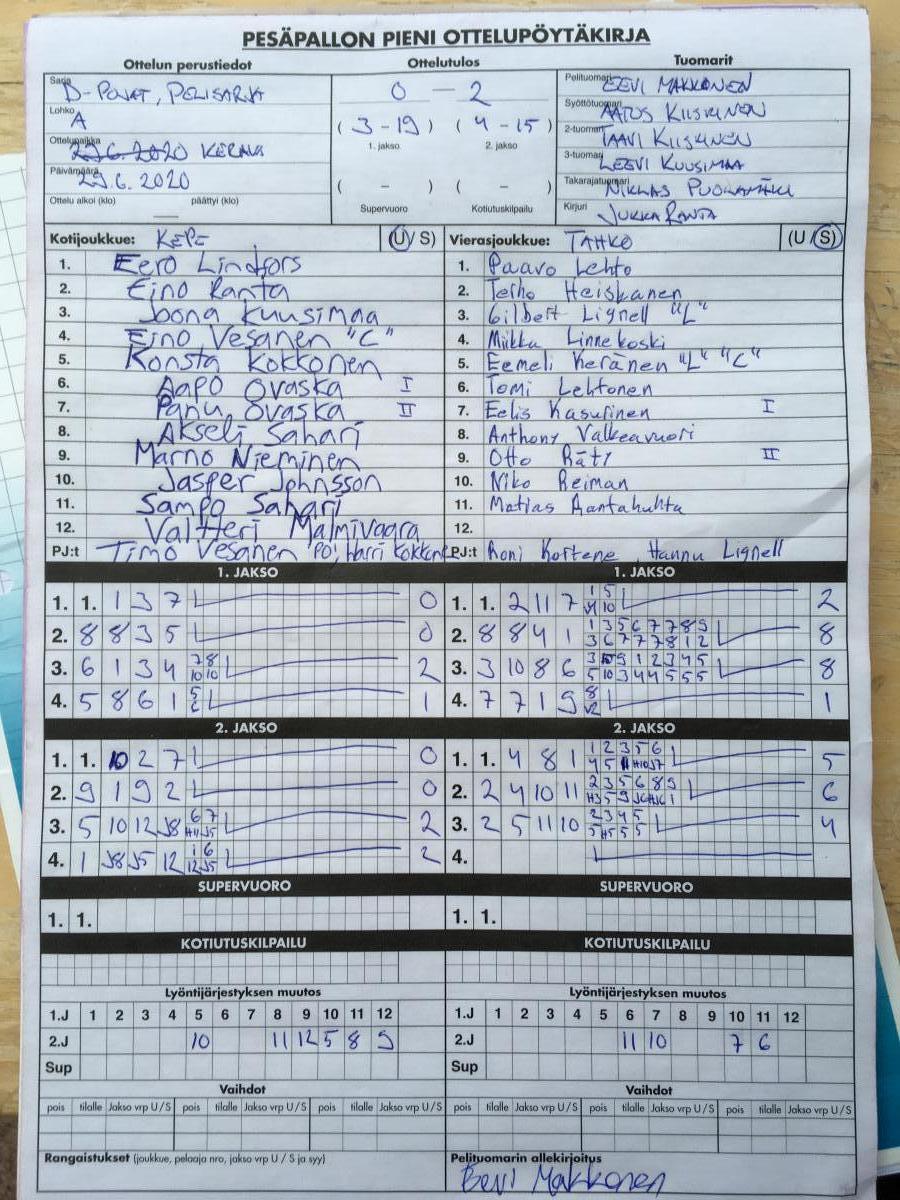 PESÄPALLON PIENI OTTELUPÖYTÄKIRJA
Ottelun perustiedot
Sarja D-POJAT, PELISARJA
Lohko A
Ottelupaikka 29.6.2020 KERAVA
Päivämäärä 29.6.2020
Ottelu alkoi (klo) — päättyi (klo)
Ottelutulos
0 — 2
(3-19) (4-15)
1. jakso 2. jakso
( - ) ( - )
Supervuoro Kotiutuskilpailu
Tuomarit
Pelituomari EEVI MAKKONEN
Syöttötuomari AATOS KIISKINEN
2-tuomari TAAVI KIISKINEN
3-tuomari LEEVI KUUSIMAA
Takarajatuomari NIKLAS PUOLAMÄKI
Kirjuri JUKKA RANTA
Kotijoukkue: KEPE (U/S)
1. Eero Lindfors
2. Eino Ranta
3. Joona Kuusimaa
4. Eino Vesanen "C"
5. Konsta Kokkonen
6. Aapo Ovaska I
7. Panu Ovaska II
8. Akseli Sahari
9. Marno Nieminen
10. Jasper Johnsson
11. Sampo Sahari
12. Valtteri Malmivaara
PJ:t Timo Vesanen "PO", Harri Kokkonen
Vierasjoukkue: TAHKO (U/S)
1. Paavo Lehto
2. Terho Heiskanen
3. Gilbert Lignell "L"
4. Miikka Linnekoski
5. Eemeli Keränen "L" "C"
6. Tomi Lehtonen
7. Eelis Kasurinen I
8. Anthony Valkeavuori
9. Otto Räty II
10. Niko Reiman
11. Matias Rantahuhta
12.
PJ:t Roni Kortene, Hannu Lignell
1. JAKSO
1. 1. 1 3 7 0
2. 8 8 3 5 0
3. 6 1 3 4 7 8 2
10 10
4. 5 8 6 1 5 1
6
1. JAKSO
1. 1. 2 11 7 1 5 2
10
2. 8 8 4 1 1 3 5 6 7 7 8 9 8
3 6 7 7 7 8 1 2
3. 3 10 8 6 3 10 9 1 2 3 4 5 8
5 10 3 4 4 5 5 5
4. 7 7 1 9 8 1
2. JAKSO
1. 1. 10 2 7 0
2. 9 1 9 2 0
3. 5 10 12 J8 6 7 2
H11 J5
4. 1 J8 J5 12 1 6 2
12 J5
2. JAKSO
1. 1. 4 8 1 1 2 3 5 6 5
4 5 11 H10 J7
2. 2 4 10 11 2 3 5 6 8 9 6
H3 5 9 J6 HJ6 1
3. 2 5 11 10 2 3 4 5 4
5 H5 5 5
4.
SUPERVUORO
1. 1.
SUPERVUORO
1. 1.
KOTIUTUSKILPAILU
KOTIUTUSKILPAILU
Lyöntijärjestyksen muutos
1.J 1 2 3 4 5 6 7 8 9 10 11 12
2.J 10 11 12 5 8 9
Sup
Lyöntijärjestyksen muutos
1.J 1 2 3 4 5 6 7 8 9 10 11 12
2.J 11 10 7 6
Sup
Vaihdot
pois tilalle Jakso vrp U/S pois tilalle Jakso vrp U/S pois tilalle Jakso vrp U/S
Vaihdot
pois tilalle Jakso vrp U/S pois tilalle Jakso vrp U/S pois tilalle Jakso vrp U/S
Rangaistukset (joukkue, pelaaja nro, jakso vrp U / S ja syy)
Pelituomarin allekirjoitus
Eevi Makkonen